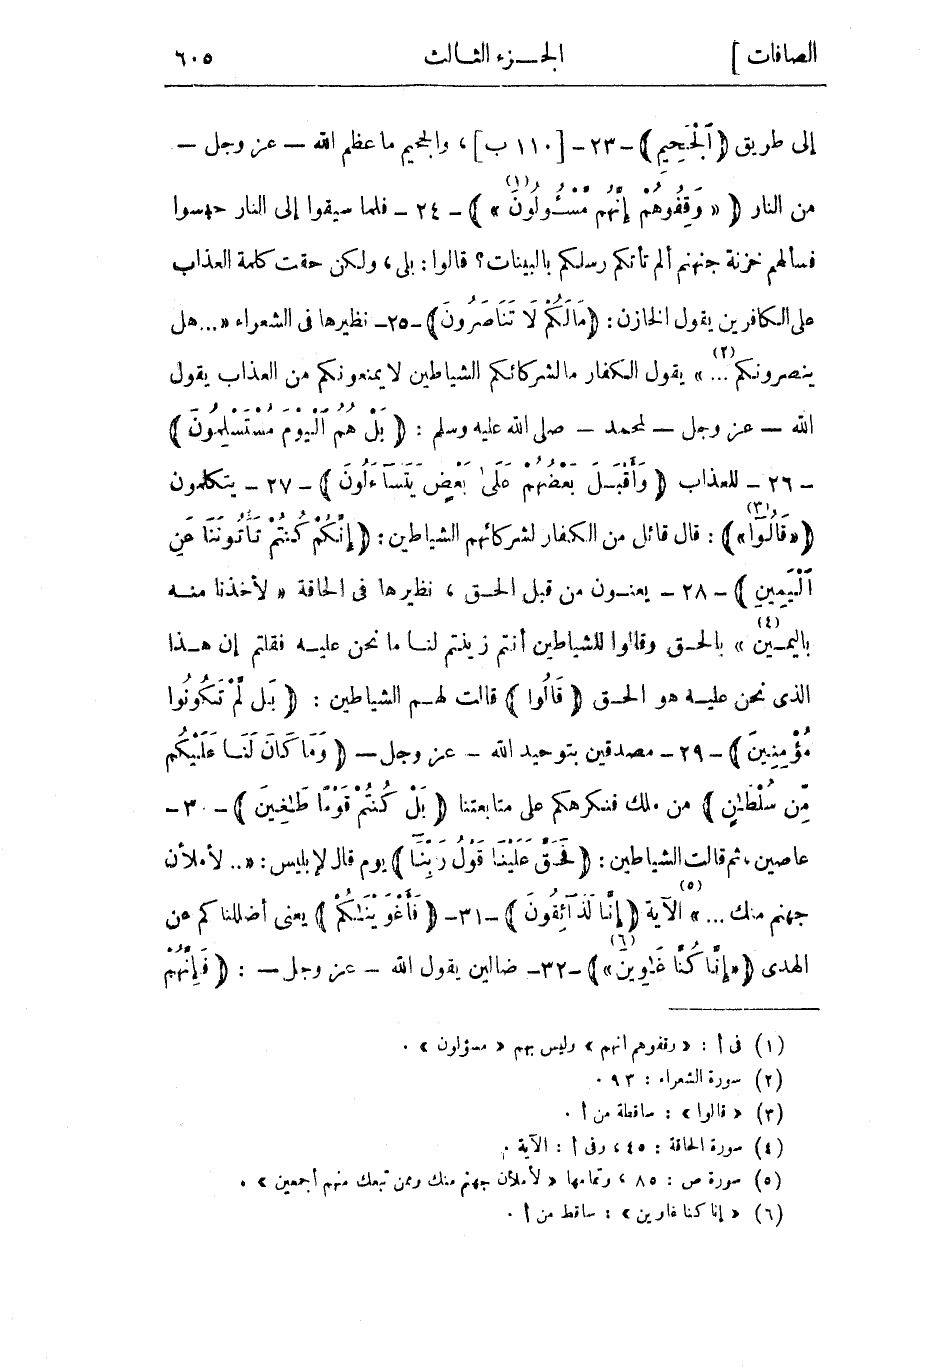 الصافات ] الجـــزء الثـالث ٦٠٥
إلى طريق ﴿ ٱلْجَحِيمِ ﴾ -٢٣- [ ١١٠ ب ] ، والجحيم ما عظم الله — عز وجل —
من النار ﴿ « وَقِفُوهُمْ إِنَّهُم مَّسْـُٔولُونَ » (١) ﴾ - ٢٤ - فلما سيقوا إلى النار حبسوا
فسألهم خزنة جهنم ألم تأتكم رسلكم بالبينات ؟ قالوا : بلى ، ولكن حقت كلمة العذاب
على الكافرين يقول الخازن : ﴿ مَالَكُمْ لَا تَنَاصَرُونَ ﴾ -٢٥- نظيرها فى الشعراء « ... هل
ينصرونكم ... (٢) » يقول الكفار ما لشركائكم الشياطين لا يمنعونكم من العذاب يقول
الله — عز وجل — لمحمد — صلى الله عليه وسلم : ﴿ بَلْ هُمُ ٱلْيَوْمَ مُسْتَسْلِمُونَ ﴾
- ٢٦ - للعذاب ﴿ وَأَقْبَـلَ بَعْضُهُمْ عَلَىٰ بَعْضٍ يَتَسَآءَلُونَ ﴾ - ٢٧ - يتكلمون
﴿ « قَالُوٓا۟ » (٣) ﴾ : قال قائل من الكفار لشركائهم الشياطين : ﴿ إِنَّكُمْ كُنتُمْ تَأْتُونَنَا عَنِ
ٱلْيَمِينِ ﴾ - ٢٨ - يعنــون من قبل الحــق ، نظيرها فى الحاقة « لأخذنا منــه
باليمــين (٤) » بالحــق وقالوا للشياطين أنتم زينتم لنــا ما نحن عليــه فقلتم إن هــذا
الذى نحن عليــه هو الحــق ﴿ قَالُوا ﴾ قالت لهــم الشياطين : ﴿ بَل لَّمْ تَكُونُوا
مُؤْمِنِينَ ﴾ - ٢٩ - مصدقين بتوحيد الله - عز وجل — ﴿ وَمَا كَانَ لَنَــا عَلَيْكُم
مِّن سُلْطَـٰنٍ ﴾ من ملك فنكرهكم على متابعتنا ﴿ بَلْ كُنتُمْ قَوْمًا طَـٰغِينَ ﴾ - ٣٠ -
عاصين ، ثم قالت الشياطين : ﴿ فَحَقَّ عَلَيْنَا قَوْلُ رَبِّنَآ ﴾ يوم قال لإبليس : « .. لأملأن
جهنم منك ... (٥) » الآية ﴿ إِنَّا لَذَآئِقُونَ ﴾ -٣١- ﴿ فَأَغْوَيْنَـٰكُمْ ﴾ يعنى أضللناكم عن
الهدى ﴿ « إِنَّا كُنَّا غَـٰوِينَ » (٦) ﴾ -٣٢- ضالين يقول الله - عز وجل — : ﴿ فَإِنَّهُمْ
(١) فى أ : « وقفوهم انهم » وليس بهم « مسؤلون » .
(٢) سورة الشعراء : ٩٣ .
(٣) « قالوا » : ساقطة من أ .
(٤) سورة الحاقة : ٤٥ ، وفى أ : الآية .
(٥) سورة ص : ٨٥ ، وتمامها « لأملأن جهنم منك وممن تبعك منهم أجمعين » .
(٦) « إنا كنا غاوين » : ساقط من أ .